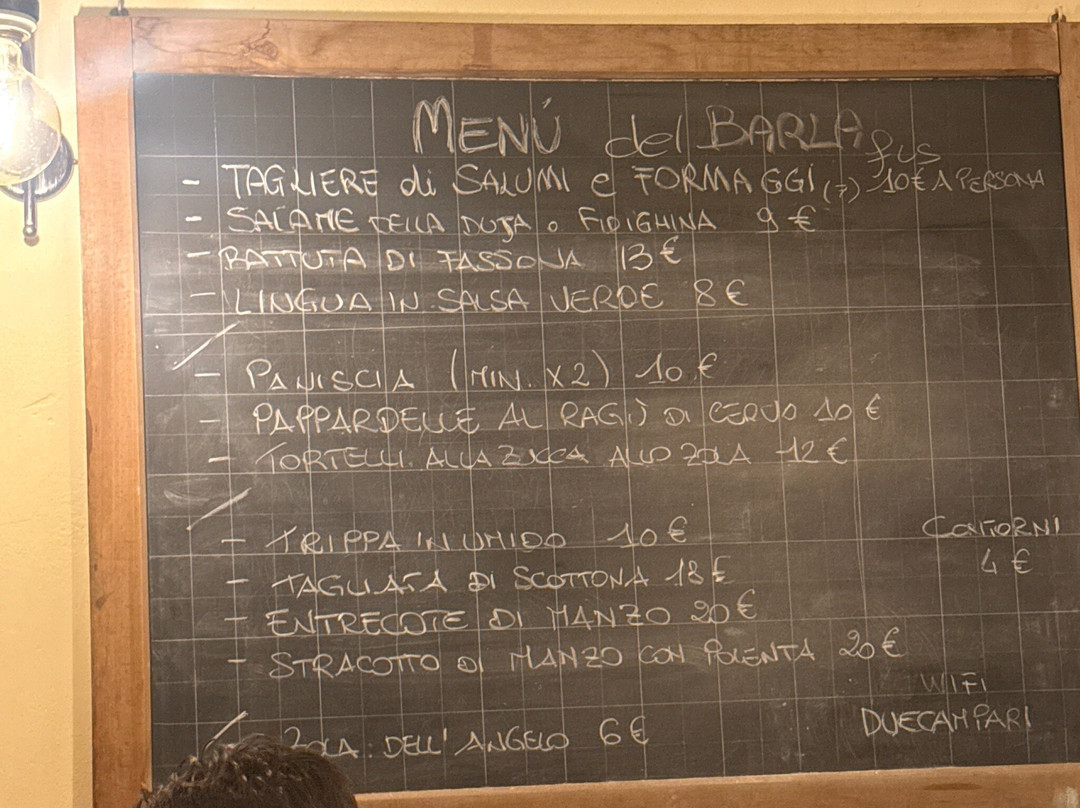 MENÚ del BARLAfus
- TAGLIERE di SALUMI e FORMAGGI (7) 10€ A PERSONA
- SALAME DELLA DUJA o FIDIGHINA 9 €
- BATTUTA DI FASSONA 13 €
- LINGUA IN SALSA VERDE 8 €
- PANISCIA (MIN. X2) 10 €
- PAPPARDELLE AL RAGÙ DI CERVO 10 €
- TORTELLI ALLA ZUCCA ALLO ZOLA 12 €
- TRIPPA IN UMIDO 10 €
- TAGLIATA DI SCOTTONA 18 €
- ENTRECOTE DI MANZO 20 €
- STRACOTTO DI MANZO CON POLENTA 20 €
ZOLA DELL'ANGELO 6 €
CONTORNI
4 €
WIFI
DUECAMPARI